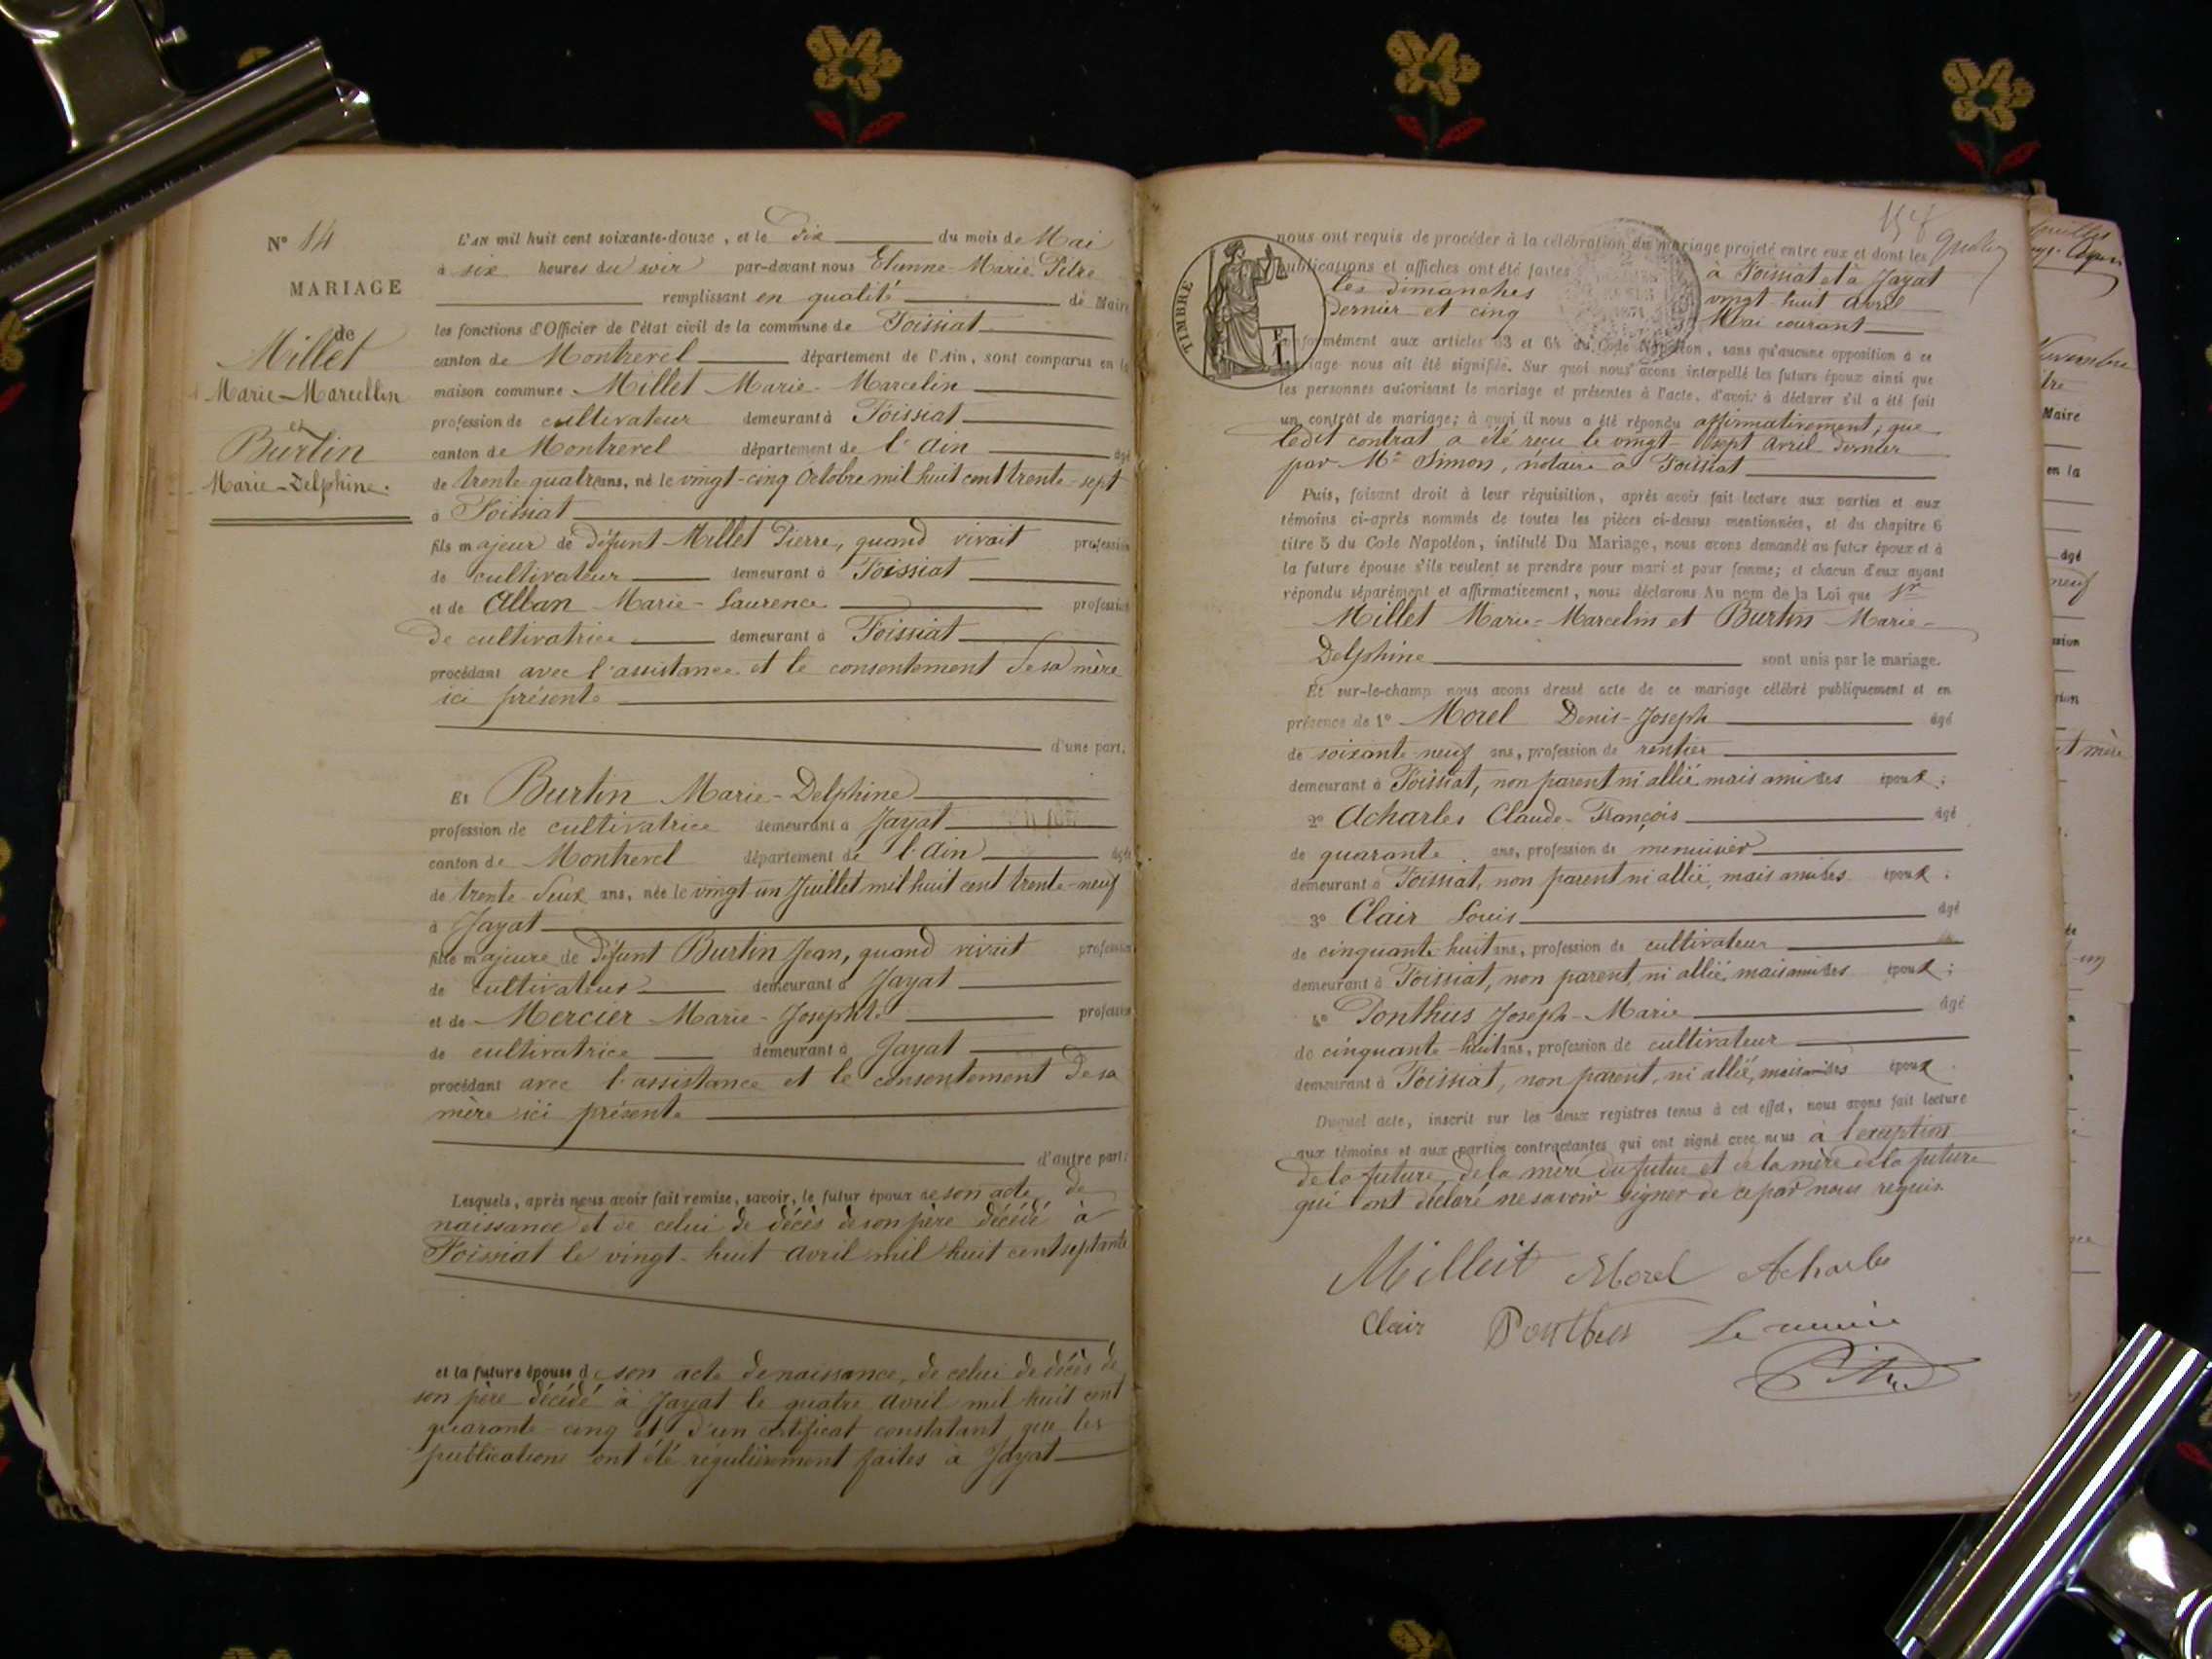 N° 14
MARIAGE
de
Millet
Marie-Marcellin
et
Burtin
Marie-Delphine.
L'AN mil huit cent soixante-douze, et le dix du mois de Mai
à six heures du soir par-devant nous Etienne-Marie Pitre
remplissant en qualité de Maire
les fonctions d'Officier de l'état civil de la commune de Foissiat
canton de Montrevel département de l'Ain, sont comparus en la
maison commune Millet Marie-Marcelin
profession de cultivateur demeurant à Foissiat
canton de Montrevel département de l'Ain âgé
de trente quatre ans, né le vingt-cinq Octobre mil huit cent trente-sept
à Foissiat
fils majeur de défunt Millet Pierre, quand vivait profession
de cultivateur demeurant à Foissiat
et de Alban Marie-Laurence profession
de cultivatrice demeurant à Foissiat
procédant avec l'assistance et le consentement de sa mère
ici présente
d'une part.
Et Burtin Marie-Delphine
profession de cultivatrice demeurant à Jayat
canton de Montrevel département de l'Ain âgée
de trente deux ans, née le vingt-un Juillet mil huit cent trente-neuf
à Jayat
fille majeure de défunt Burtin Jean, quand vivait profession
de cultivateur demeurant à Jayat
et de Mercier Marie-Josephte profession
de cultivatrice demeurant à Jayat
procédant avec l'assistance et le consentement de sa
mère ici présente
d'autre part.
Lesquels, après nous avoir fait remise, savoir, le futur époux de son acte de
naissance et de celui de décès de son père décédé à
Foissiat le vingt-huit avril mil huit cent septante
et la future épouse de son acte de naissance, de celui de décès de
son père décédé à Jayat le quatre avril mil huit cent
quarante-cinq et d'un certificat constatant que les
publications ont été régulièrement faites à Jayat
nous ont requis de procéder à la célébration du mariage projeté entre eux et dont les
publications et affiches ont été faites à Foissiat et à Jayat
les dimanches vingt huit avril
dernier et cinq Mai courant
TIMBRE
conformément aux articles 63 et 64 du Code Napoléon, sans qu'aucune opposition à ce
mariage nous ait été signifiée. Sur quoi nous avons interpellé les futurs époux ainsi que
les personnes autorisant le mariage et présentes à l'acte, d'avoir à déclarer s'il a été fait
un contrat de mariage; à quoi il nous a été répondu affirmativement, que
ledit contrat a été reçu le vingt-sept avril dernier
par Me Simon, notaire à Foissiat
Puis, faisant droit à leur réquisition, après avoir fait lecture aux parties et aux
témoins ci-après nommés de toutes les pièces ci-dessus mentionnées, et du chapitre 6
titre 5 du Code Napoléon, intitulé Du Mariage, nous avons demandé au futur époux et à
la future épouse s'ils veulent se prendre pour mari et pour femme; et chacun d'eux ayant
répondu séparément et affirmativement, nous déclarons Au nom de la Loi que
Millet Marie-Marcelin et Burtin Marie-
Delphine sont unis par le mariage.
Et sur-le-champ nous avons dressé acte de ce mariage célébré publiquement et en
présence de 1° Morel Denis-Joseph âgé
de soixante-neuf ans, profession de rentier
demeurant à Foissiat, non parent ni allié mais ami des époux;
2° Acharles Claude-François âgé
de quarante ans, profession de menuisier
demeurant à Foissiat, non parent ni allié, mais ami des époux;
3° Clair Louis âgé
de cinquante-huit ans, profession de cultivateur
demeurant à Foissiat, non parent, ni allié, mais ami des époux;
4° Ponthus Joseph-Marie âgé
de cinquante-huit ans, profession de cultivateur
demeurant à Foissiat, non parent, ni allié, mais ami des époux
Duquel acte, inscrit sur les deux registres tenus à cet effet, nous avons fait lecture
aux témoins et aux parties contractantes qui ont signé avec nous à l'exception
de la future, de la mère du futur et de la mère de la future
qui ont déclaré ne savoir signer de ce par nous requis.
Milleit Morel Acharles
Clair Ponthus Le maire
Pitre